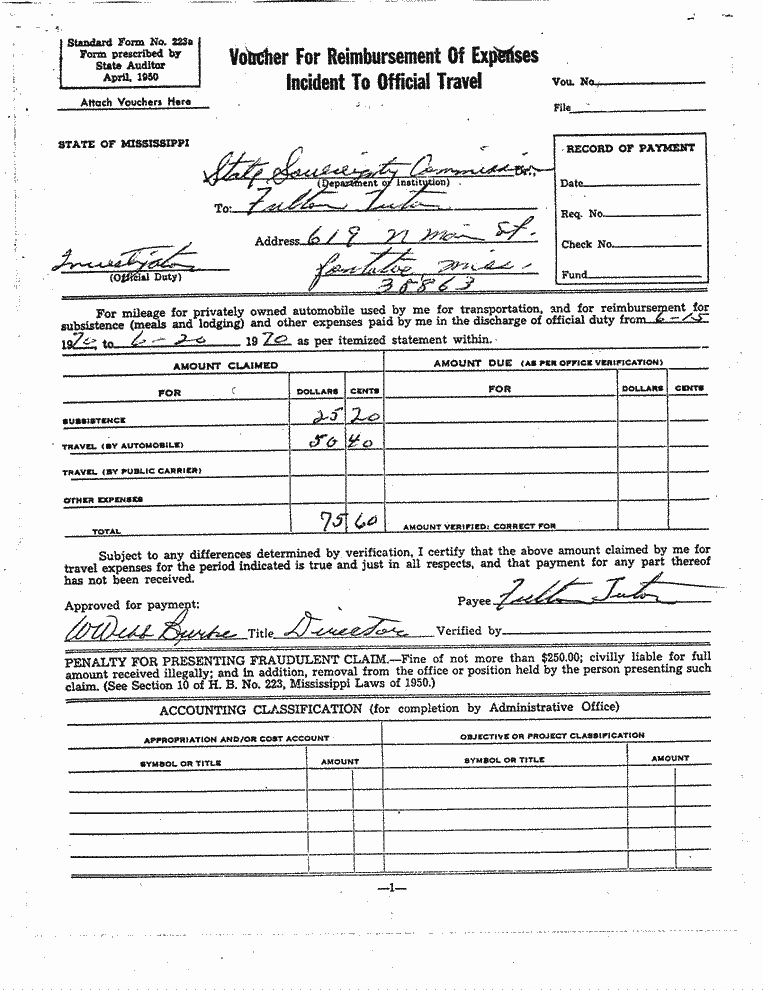 Standard Form No. 223a
Form prescribed by
State Auditor
April, 1950
Attach Vouchers Here
Voucher For Reimbursement Of Expenses
Incident To Official Travel
Vou. No.
File
STATE OF MISSISSIPPI
State Sovereignty Commission
(Department or Institution)
To: Fulton Tutor
Address 619 N Main St.
Miss.
38863
Investigator
(Official Duty)
RECORD OF PAYMENT
Date
Req. No.
Check No.
Fund
For mileage for privately owned automobile used by me for transportation, and for reimbursement for
subsistence (meals and lodging) and other expenses paid by me in the discharge of official duty from 6-15
1970 to 6-20 1970 as per itemized statement within.
AMOUNT CLAIMED AMOUNT DUE (AS PER OFFICE VERIFICATION)
FOR DOLLARS CENTS FOR DOLLARS CENTS
SUBSISTENCE 25 20
TRAVEL (BY AUTOMOBILE) 50 40
TRAVEL (BY PUBLIC CARRIER)
OTHER EXPENSES
TOTAL 75 60 AMOUNT VERIFIED: CORRECT FOR
Subject to any differences determined by verification, I certify that the above amount claimed by me for
travel expenses for the period indicated is true and just in all respects, and that payment for any part thereof
has not been received.
Approved for payment: Payee Fulton Tutor
W Webb Burke Title Director Verified by
PENALTY FOR PRESENTING FRAUDULENT CLAIM.—Fine of not more than $250.00; civilly liable for full
amount received illegally; and in addition, removal from the office or position held by the person presenting such
claim. (See Section 10 of H. B. No. 223, Mississippi Laws of 1950.)
ACCOUNTING CLASSIFICATION (for completion by Administrative Office)
APPROPRIATION AND/OR COST ACCOUNT OBJECTIVE OR PROJECT CLASSIFICATION
SYMBOL OR TITLE AMOUNT SYMBOL OR TITLE AMOUNT
—1—